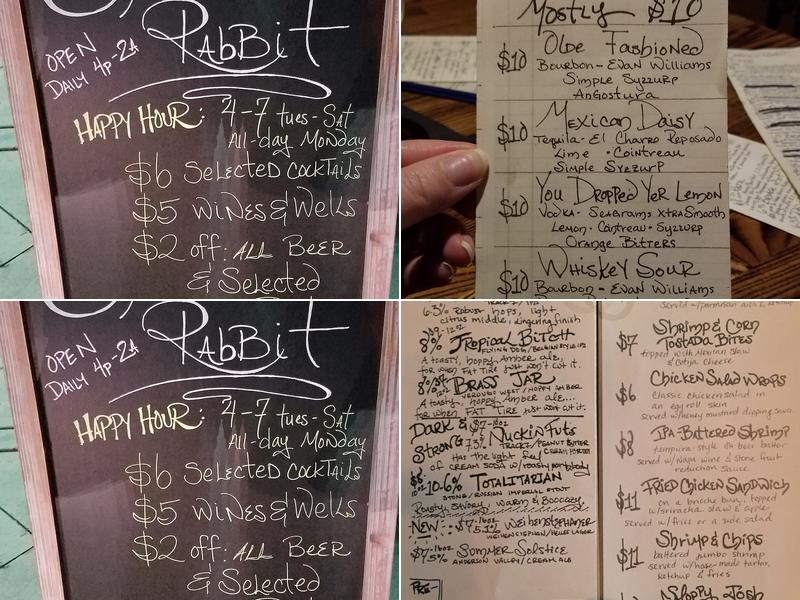 RabbiT
OPEN
DAILY 4p-2A
HAPPY HOUR: 4-7 tues-Sat
All-day Monday
$6 Selected cockTails
$5 wiNes & Wells
$2 off: ALL Beer
& Selected
Mostly $10
$10 Olde Fashioned
Bourbon - Evan Williams
Simple Syzzurp
Angostura
$10 Mexican Daisy
Tequila - El Charro Reposado
Lime · Cointreau
Simple Syzzurp
$10 You Dropped Yer Lemon
Vodka - Seagrams XtraSmooth
Lemon · Cointreau · Syzzurp
Orange Bitters
$10 Whiskey Sour
Bourbon - Evan Williams
RabbiT
OPEN
DAILY 4p-2A
HAPPY HOUR: 4-7 tues-Sat
All-day Monday
$6 Selected cockTails
$5 wiNes & Wells
$2 off: ALL Beer
& Selected
6.3% Robust hops, light
citrus middle, lingering finish
8% Tropical Bitch
FLYING DOG / BELGIAN STYLE IPA
A toasty, hoppy Amber ale,
for when FAT TIRE just won't cut it.
BRASS JAR
A toasty, hoppy Amber ale...
for when FAT TIRE just won't cut it.
DARK & STRONG
$7-16oz
7.5% NUCKIN FUTS
TRACK 7 / PEANUT BUTTER
CREAM PORTER
Has the light feel
of CREAM SODA w/ roasty port body
10-6% TOTALITARIAN
STONE / RUSSIAN IMPERIAL STOUT
Roasty, Swirly, Warm & Boocey
NEW: $7-16oz 5.1% Weihenstephaner
WEIHENSTEPHAN / HELLES LAGER
$7-16oz 5.5% Summer Solstice
ANDERSON VALLEY / CREAM ALE
$7 Shrimp & Corn
Tostada Bites
topped with Mexican Slaw
& Cotija Cheese
$6 Chicken Salad Wraps
Classic chicken salad in
an egg roll skin
served w/ honey mustard dipping sauce
$8 IPA-Battered Shrimp
tempura-style ipa beer batter
served w/ Napa wine & stone fruit
reduction sauce
$11 Fried Chicken Sandwich
on a brioche bun, topped
w/ sriracha slaw & apple.
served w/ fries or a side salad
$11 Shrimp & Chips
battered jumbo shrimp
served w/ house-made tartar,
ketchup & fries
Sloppy Josh